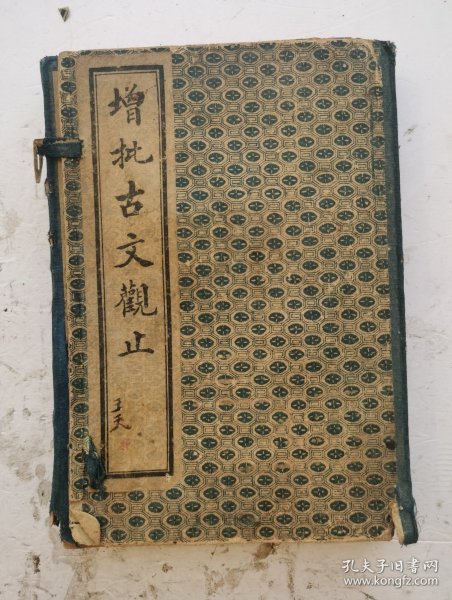 增批古文觀止
王天
孔夫子旧书网
www.kongfz.com